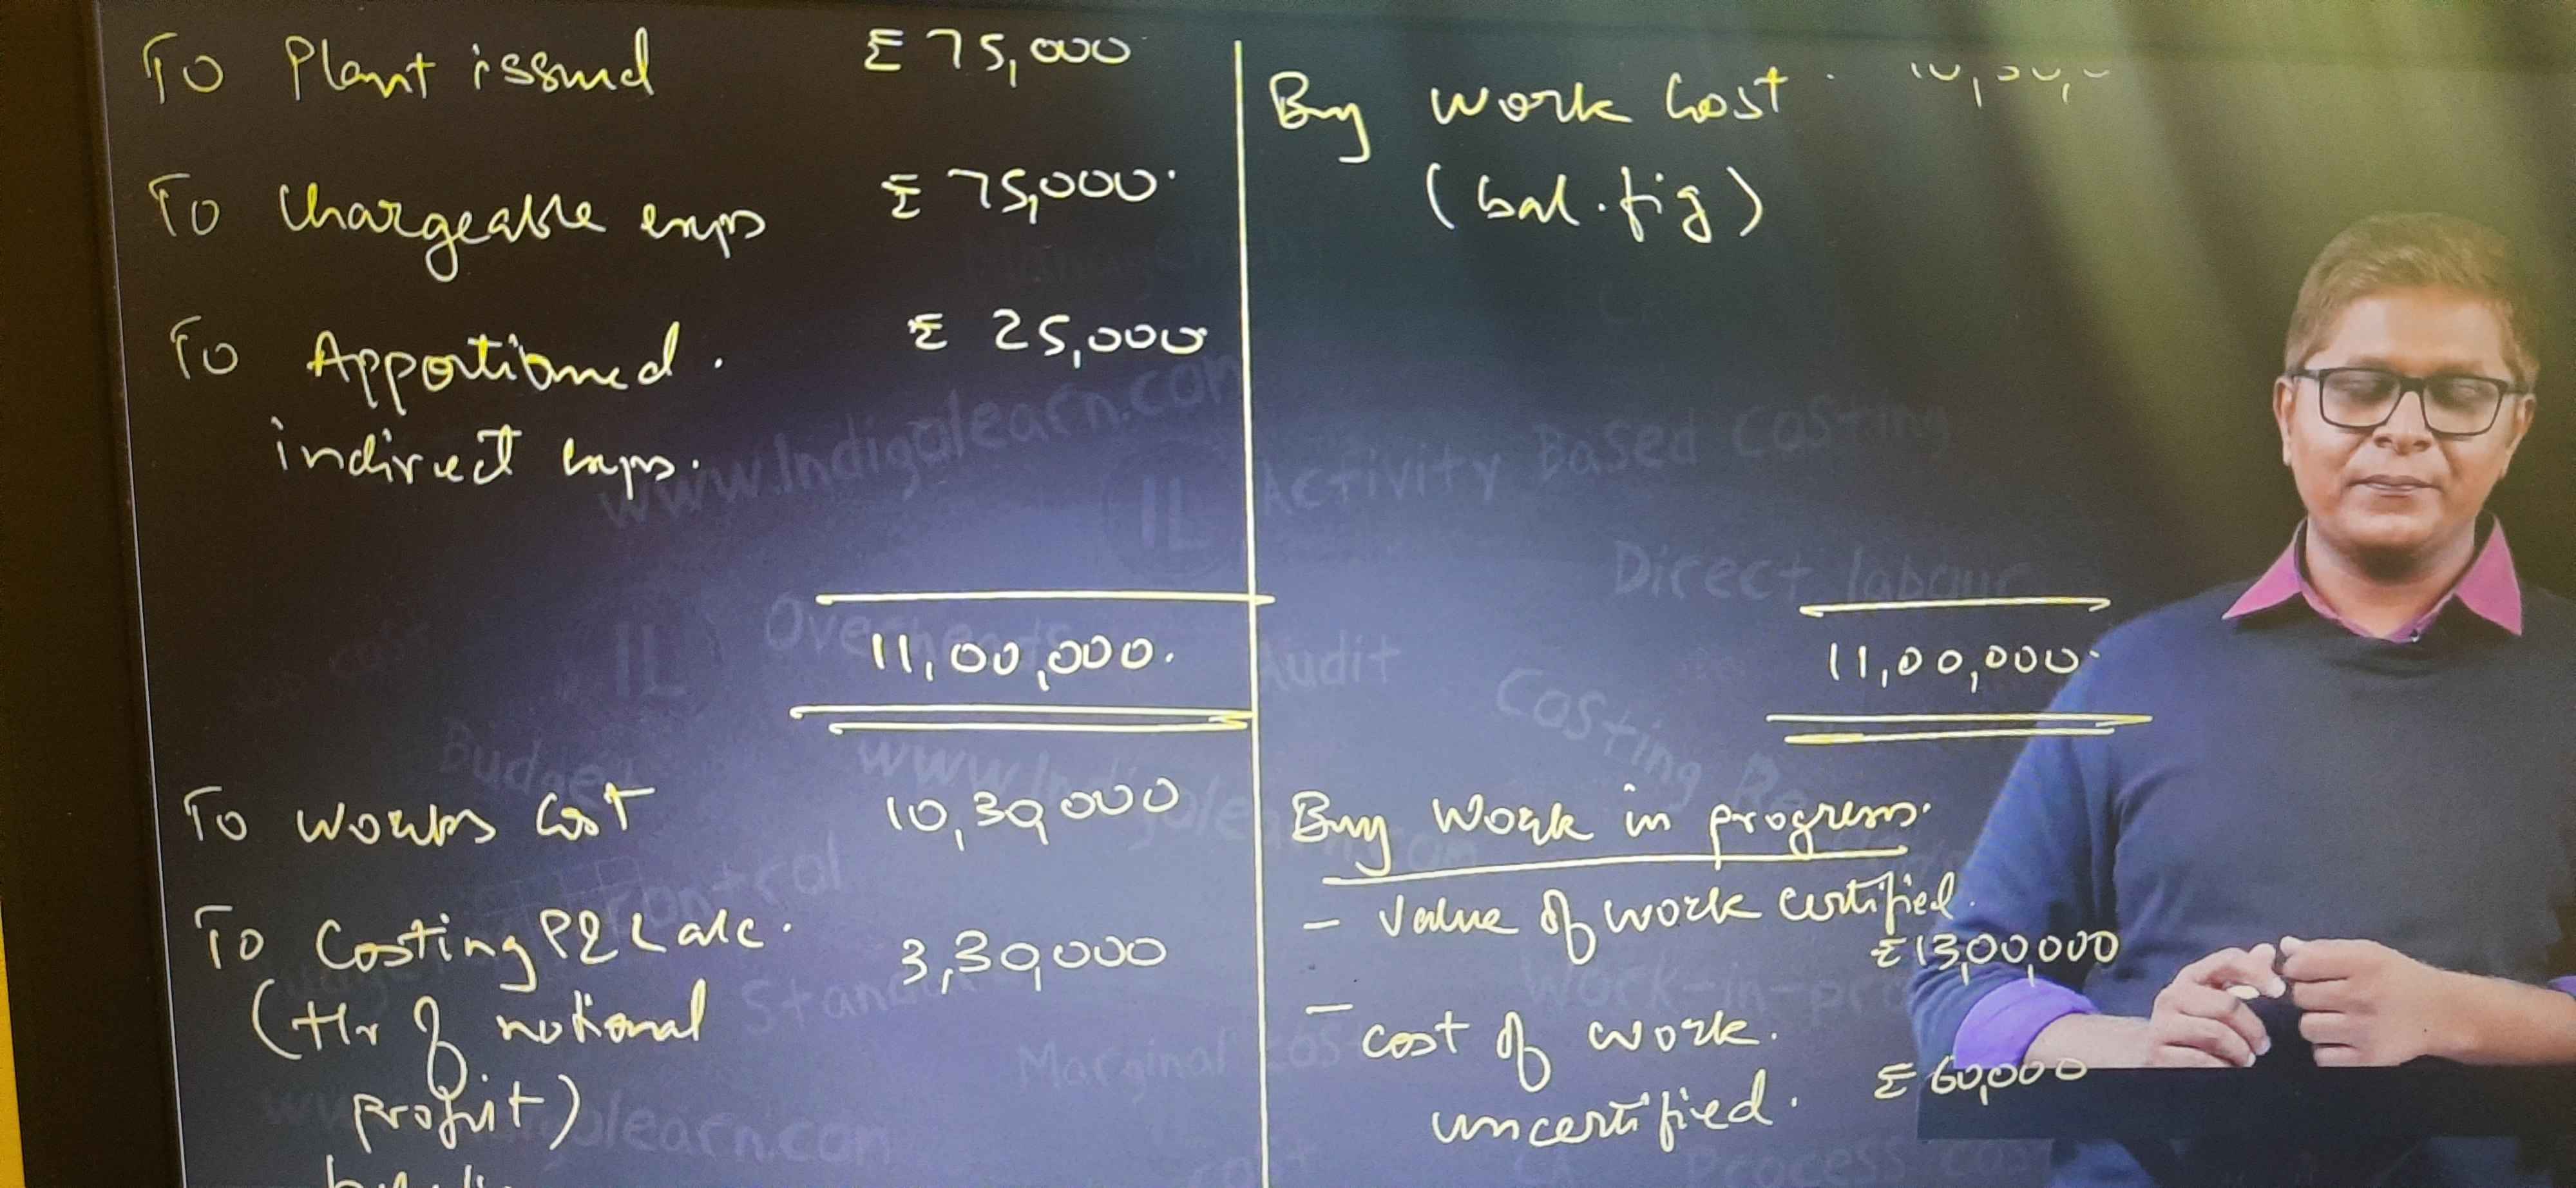 To Plant issued ₹ 75,000
To Chargeable exps ₹ 75,000.
To Apportioned. ₹ 25,000
indirect exps.
11,00,000.
To Works Cost 10,30,000
To Costing P&L a/c. 3,30,000
(tfr of notional
profit)
By Work Cost
(bal. fig)
11,00,000
By Work in progress.
- Value of work certified.
₹ 13,00,000
- Cost of work.
uncertified. ₹ 60,000
www.Indigolearn.com
IL
Activity Based Costing
Direct labour
Overheads
IL
Audit
Costing
Budget
Control
Marginal cost
Process cost